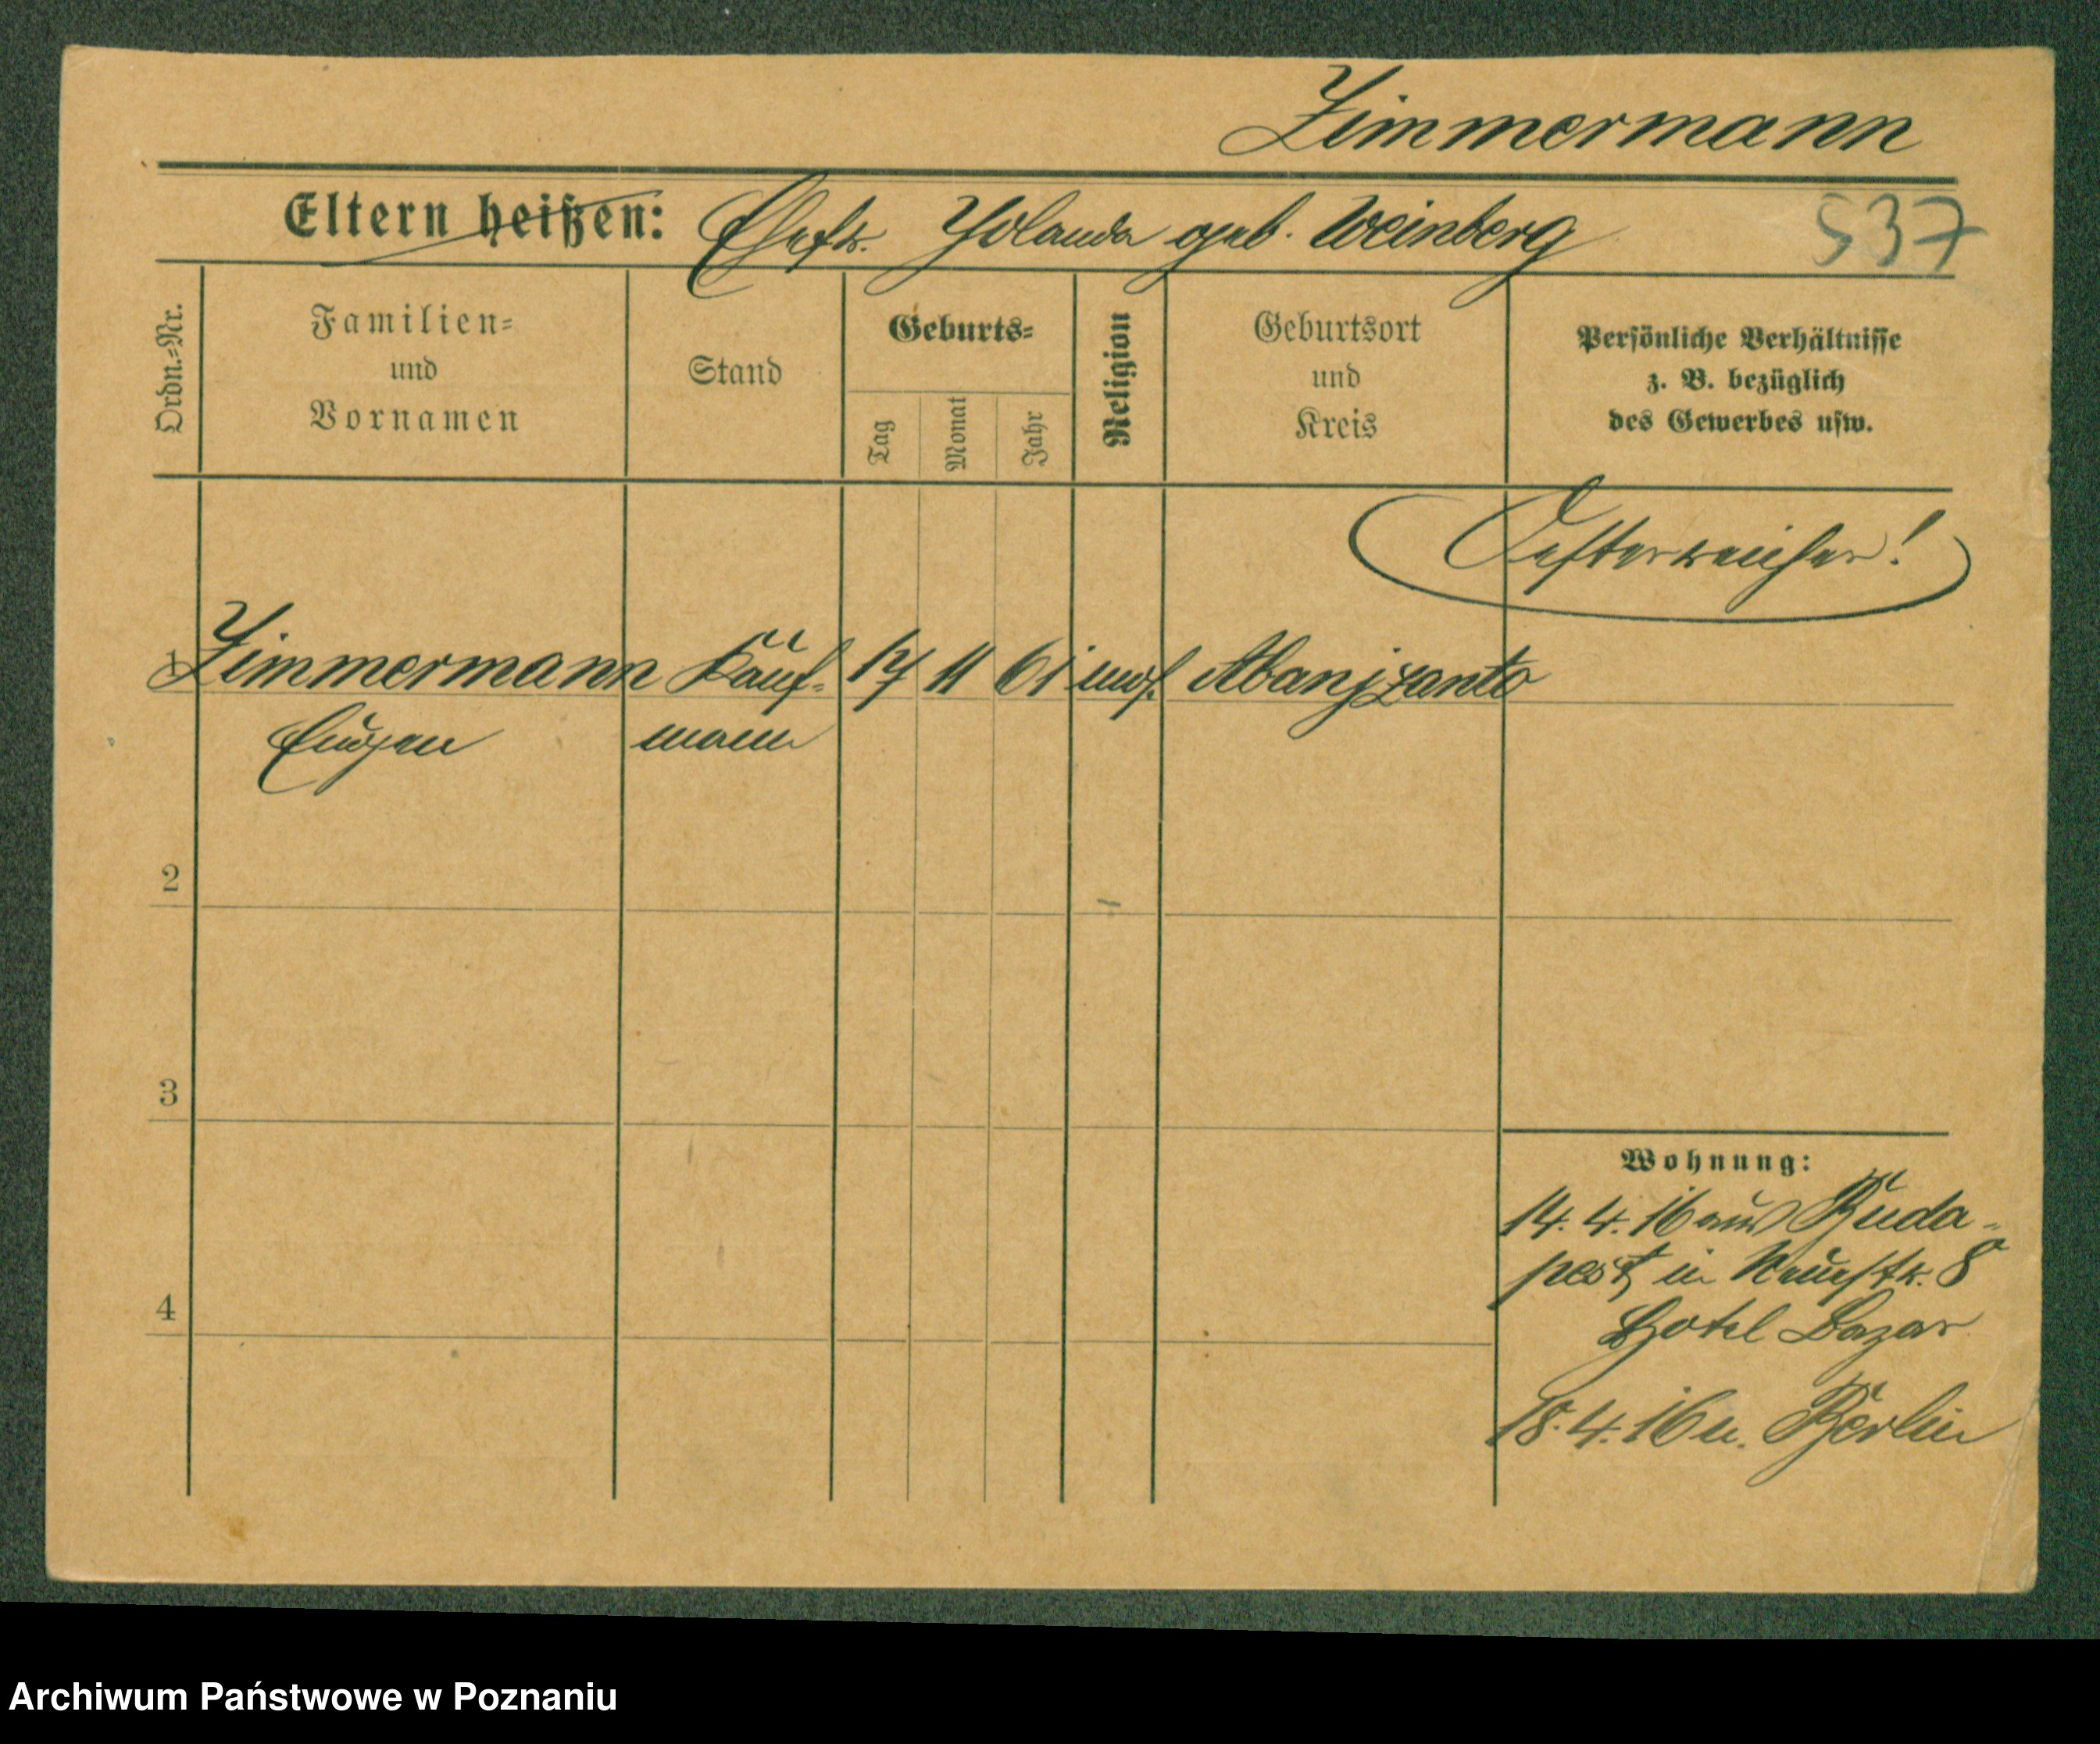 Zimmermann
Eltern heißen: Ehefr. Yolanda geb. Weinberg 537
Ordn.=Nr.
Familien=
und
Vornamen
Stand
Geburts=
Tag
Monat
Jahr
Religion
Geburtsort
und
Kreis
Persönliche Verhältnisse
z. B. bezüglich
des Gewerbes usw.
Oesterreicher!
1 Zimmermann Kauf- 17 11 61 mos. Abanjzanto
Eugen mann
2
3
4
Wohnung:
14. 4. 16 aus Buda-
pest in Neuestr. 8
Hotel Bazar
18. 4. 16 n. Berlin
Archiwum Państwowe w Poznaniu